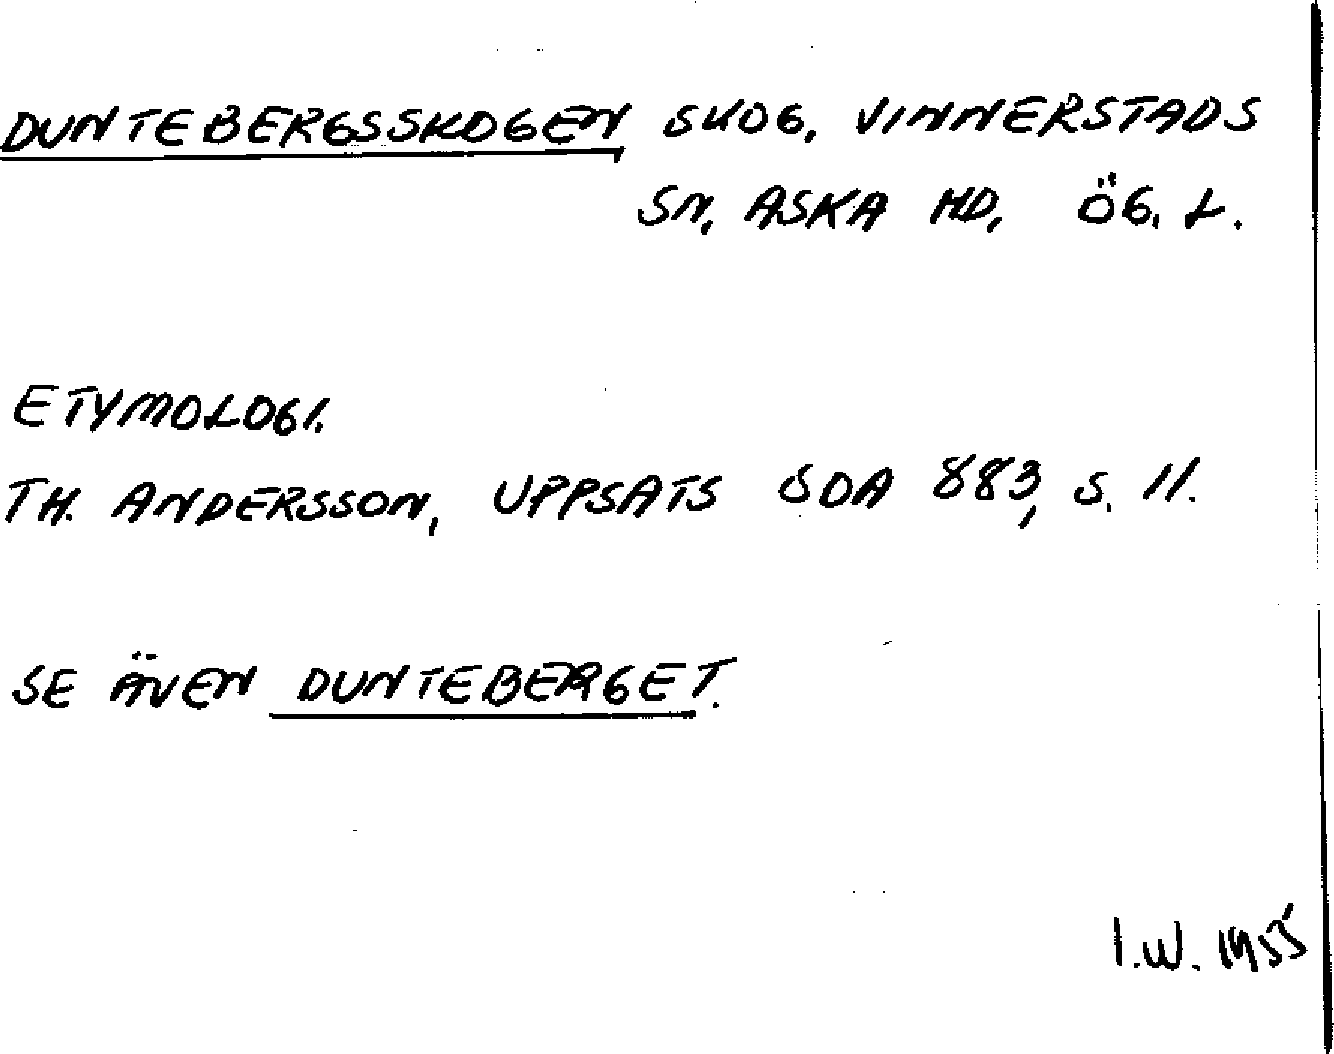 DUNTEBERGSSKOGEN SKOG, VINNERSTADS
SN, ASKA HD, ÖG. L.
ETYMOLOGI.
TH. ANDERSSON, UPPSATS SOA 883, S. 11.
SE ÄVEN DUNTEBERGET.
I.W. 1955